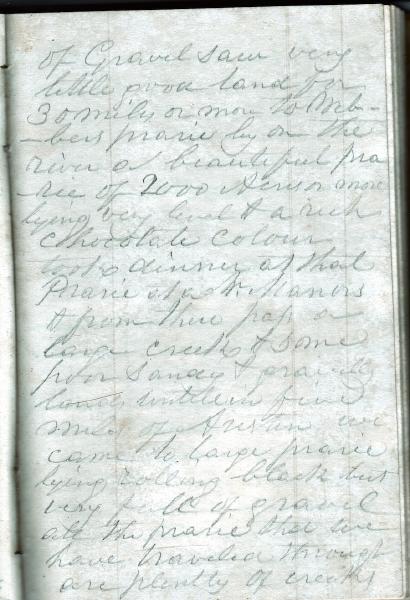 of Gravel saw very
little good land for
30 mily or more to Web-
-bers prarie ly on the
river a beautiful pra
-rie of 2000 Acres or more
lying very level & a rich
Chocolate Colour
took dinner at that
Prarie at a Mr Manors
& from there pass a
large creek & some
poor Sandy & gravelly
land untile in five
miles of Austin we
came to large prarie
lying rolling black but
very full of gravel
all the prarie that we
have traveled through
are plenty of creeks